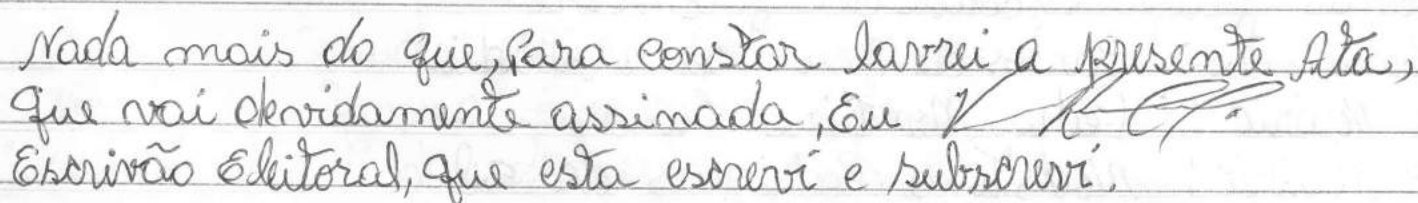 Nada mais do que, para constar lavrei a presente Ata,
que vai devidamente assinada, Eu
Escrivão Eleitoral, que esta escrevi e subscrevi.